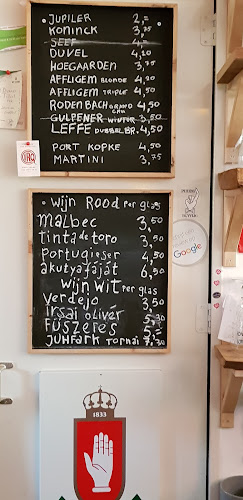 JUPILER 2,=
KONINCK 3,75
SEEF 4,=
DUVEL 4,20
HOEGAARDEN 3,75
AFFLIGEM BLONDE 4,20
AFFLIGEM TRIPLE 4,50
RODENBACH GRAND CRU 4,50
GULPENER WINTER 3,50
LEFFE DUBBEL BR. 4,50
PORT KOPKE 4,50
MARTINI 3,75
Wijn Rood Per glas
malbec 3,50
tinta de toro 3,90
Portugieser 4,50
akutyafáját 6,90
Wijn Wit Per glas
verdejo 3,50
irsai olivér
FÜSZERES
JUHFARK Tornai 7,30
Google
1833